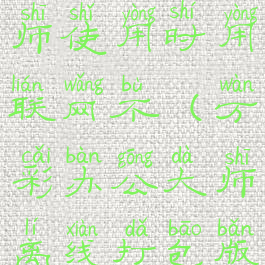 shī shǐ yòng shí yòng
师使用时用
lián wǎng bù wàn
联网不（万
cǎi bàn gōng dà shī
彩办公大师
lí xiàn dǎ bāo bǎn
离线打包版